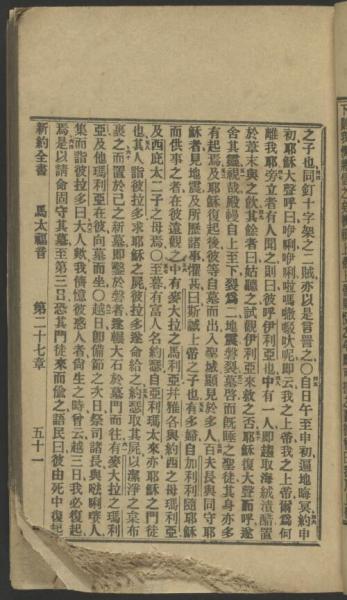 之子也同釘十字架之二賊亦以是言詈之〇自日午至申初遍地晦冥約申
初耶穌大聲呼曰唎唎啦嗎嘅呔呢即云我之上帝我之上帝爾爲何
離我耶旁立者有人聞之則曰彼呼伊利亞也中有一人即趨取海絨漬醋置
於葦末與之飲其餘者曰姑聽之試觀伊利亞來救之否耶穌復大聲而呼遂
舍其靈視哉殿幔自上至下裂爲二地震磐裂墓啓而旣睡之聖徒其身亦多
有起焉及耶穌復起後彼等自墓而出入聖城顯見於多人百夫長與同守耶
穌者見地震及所歷諸事懼甚曰斯誠上帝之子也有多婦自加利利隨耶穌
而供事之者在彼遠觀之中有麥大拉之馬利亞并雅各與約西之母瑪利亞
及西庇太二子之母焉〇至暮有富人名約瑟自亞利瑪太來亦耶穌之門徒
也其人詣彼拉多求耶穌之屍彼拉多遂命給之約瑟取其屍以潔淨之枲布
裹之而置於己之新墓即鑿於磐者遂輾大石於墓門而往有麥大拉之瑪利
亞及他瑪利亞在彼向墓而坐〇越日卽備節之次日祭司諸長與㗎唎㘔人
集而詣彼拉多曰大人歟我儕憶彼惑人者尚生之時曾云越三日我必復起
焉是以請命固守其墓至第三日恐其門徒來而偷之語民曰彼由死中復起
新約全書 馬太福音 第二十七章 五十一